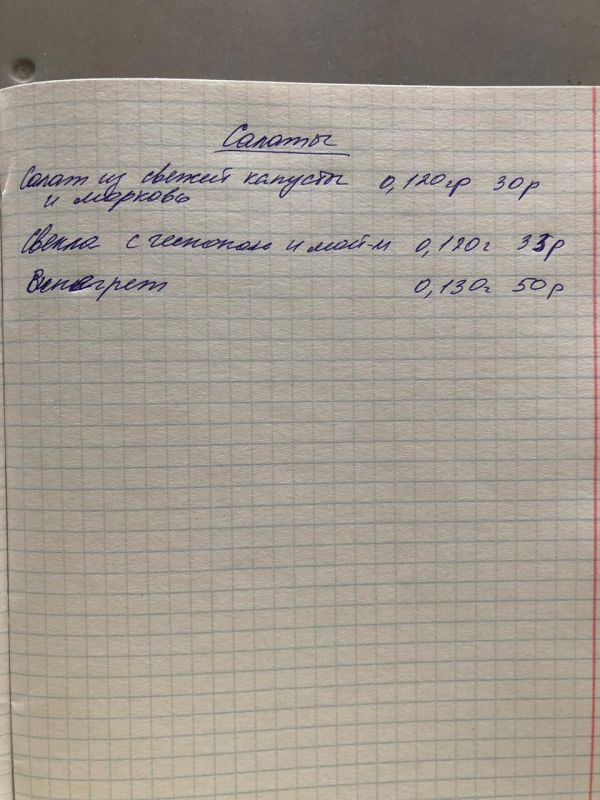 Салаты
Салат из свежей капусты 0,120гр 30р
и морковь
Свекла с чесноком и май-м 0,120г 33р
Винегрет 0,130г 50р